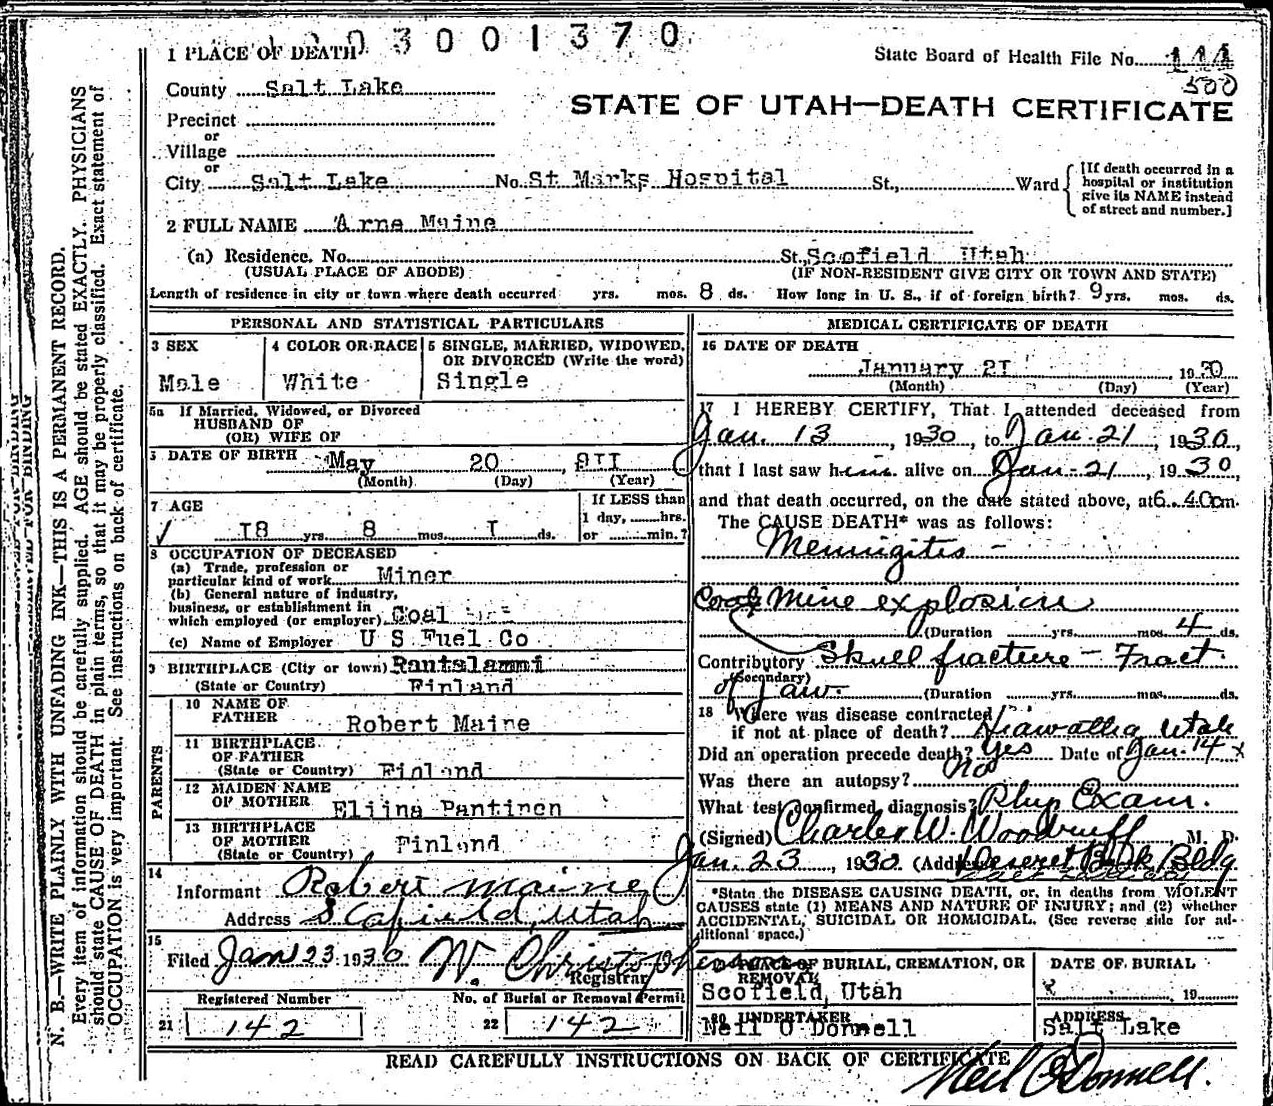 3001370
1 PLACE OF DEATH
State Board of Health File No. 144
500
County Salt Lake
STATE OF UTAH—DEATH CERTIFICATE
Precinct
or
Village
or
City Salt Lake No. St Marks Hospital St., Ward
[If death occurred in a
hospital or institution
give its NAME instead
of street and number.]
2 FULL NAME Arne Maine
(a) Residence. No. St., Scofield Utah
(USUAL PLACE OF ABODE) (IF NON-RESIDENT GIVE CITY OR TOWN AND STATE)
Length of residence in city or town where death occurred yrs. mos. 8 ds. How long in U. S., if of foreign birth? 9 yrs. mos. ds.
PERSONAL AND STATISTICAL PARTICULARS
3 SEX
Male
4 COLOR OR RACE
White
5 SINGLE, MARRIED, WIDOWED,
OR DIVORCED (Write the word)
Single
5a If Married, Widowed, or Divorced
HUSBAND OF
(OR) WIFE OF
6 DATE OF BIRTH May 20, 9II
(Month) (Day) (Year)
7 AGE
I8 yrs. 8 mos. I ds.
If LESS than
1 day, hrs.
or min.?
8 OCCUPATION OF DECEASED
(a) Trade, profession or
particular kind of work Miner
(b) General nature of industry,
business, or establishment in
which employed (or employer) Coal
(c) Name of Employer U S Fuel Co
9 BIRTHPLACE (City or town) Rantalammi
(State or Country) Finland
PARENTS
10 NAME OF
FATHER Robert Maine
11 BIRTHPLACE
OF FATHER
(State or Country) Finland
12 MAIDEN NAME
OF MOTHER Eliina Pantinen
13 BIRTHPLACE
OF MOTHER
(State or Country) Finland
14
Informant Robert Maine
Address Scofield, Utah
15
Filed Jan 23 1930 W. Christopherson
Registrar
Registered Number
21 142
No. of Burial or Removal Permit
22 142
MEDICAL CERTIFICATE OF DEATH
16 DATE OF DEATH
January 2I, 1930
(Month) (Day) (Year)
17 I HEREBY CERTIFY, That I attended deceased from
Jan. 13, 1930, to Jan. 21, 1930,
that I last saw him alive on Jan-21, 1930
and that death occurred, on the date stated above, at 6.40 m.
The CAUSE DEATH* was as follows:
Meningitis -
Coal Mine explosion
(Duration yrs. mos. 4 ds.
Contributory Skull fracture - Fract.
(Secondary)
of jaw. (Duration yrs. mos. ds.
18 Where was disease contracted
if not at place of death? Hiawatha Utah
Did an operation precede death? Yes Date of Jan. 14
Was there an autopsy? No
What test confirmed diagnosis? Phys Exam.
(Signed) Charles W. Woodruff M. D.
Jan. 23, 1930 (Address) Deseret Bank Bldg
*State the DISEASE CAUSING DEATH, or, in deaths from VIOLENT
CAUSES state (1) MEANS AND NATURE OF INJURY; and (2) whether
ACCIDENTAL, SUICIDAL OR HOMICIDAL. (See reverse side for ad-
ditional space.)
PLACE OF BURIAL, CREMATION, OR
REMOVAL
Scofield, Utah
DATE OF BURIAL
19
20 UNDERTAKER
Neil O Donnell
ADDRESS
Salt Lake
READ CAREFULLY INSTRUCTIONS ON BACK OF CERTIFICATE
Neil O'Donnell.
N. B.—WRITE PLAINLY WITH UNFADING INK—THIS IS A PERMANENT RECORD.
Every item of information should be carefully supplied. AGE should be stated EXACTLY. PHYSICIANS
should state CAUSE OF DEATH in plain terms, so that it may be properly classified. Exact statement of
OCCUPATION is very important. See instructions on back of certificate.